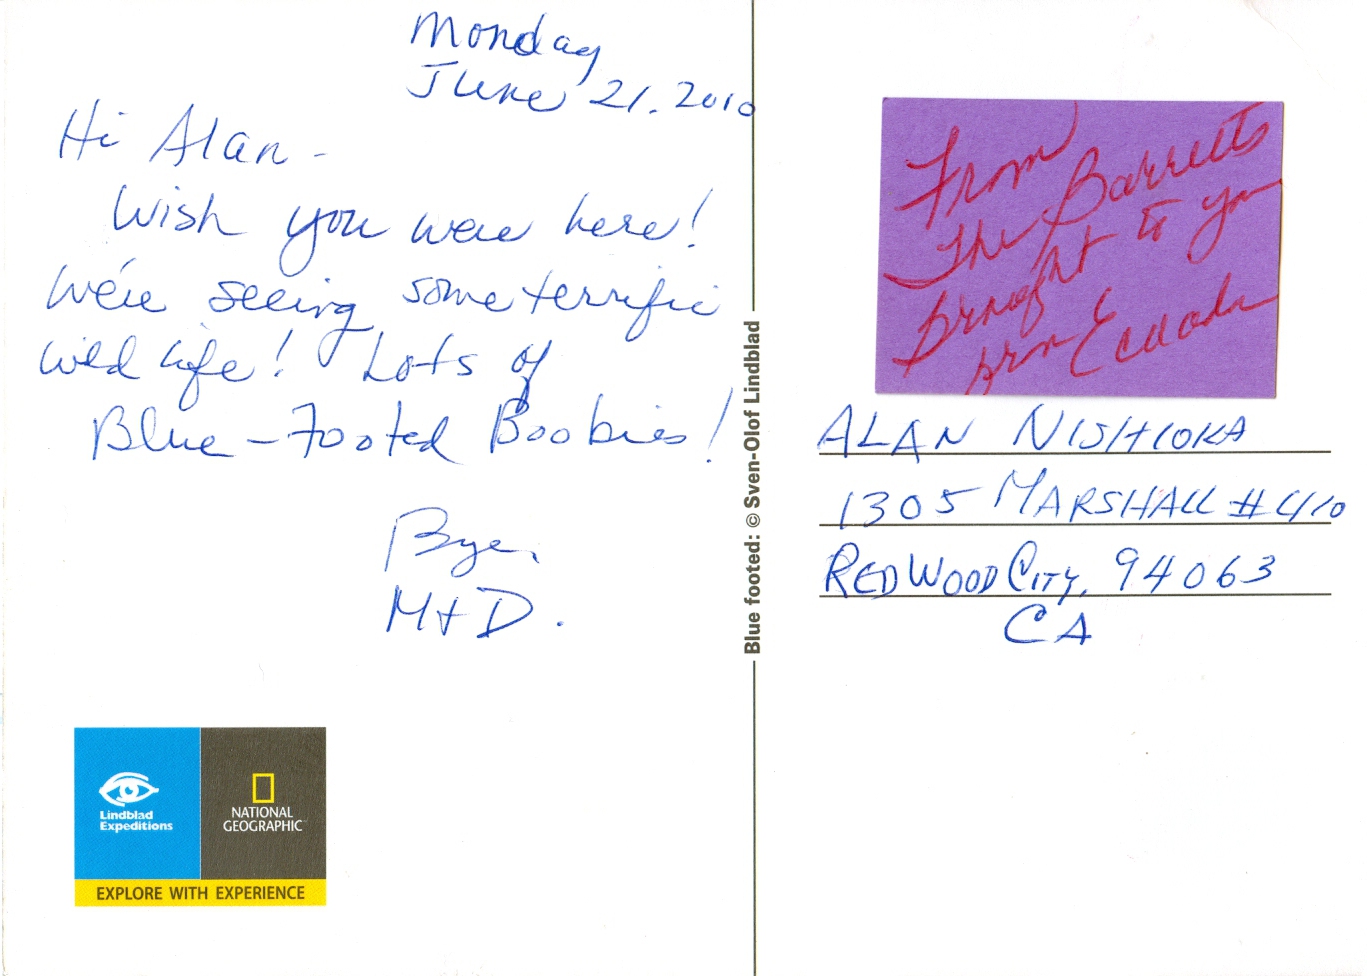 Monday
June 21. 2010
Hi Alan -
Wish you were here!
We're seeing some terrific
wild life! Lots of
Blue-Footed Boobies!
Bye,
M + D.
Lindblad
Expeditions
NATIONAL
GEOGRAPHIC
EXPLORE WITH EXPERIENCE
Blue footed: © Sven-Olof Lindblad
From
The Barretts
Brought to you
from Ecuador
ALAN NISHIOKA
1305 MARSHALL #410
REDWOOD CITY, 94063
CA